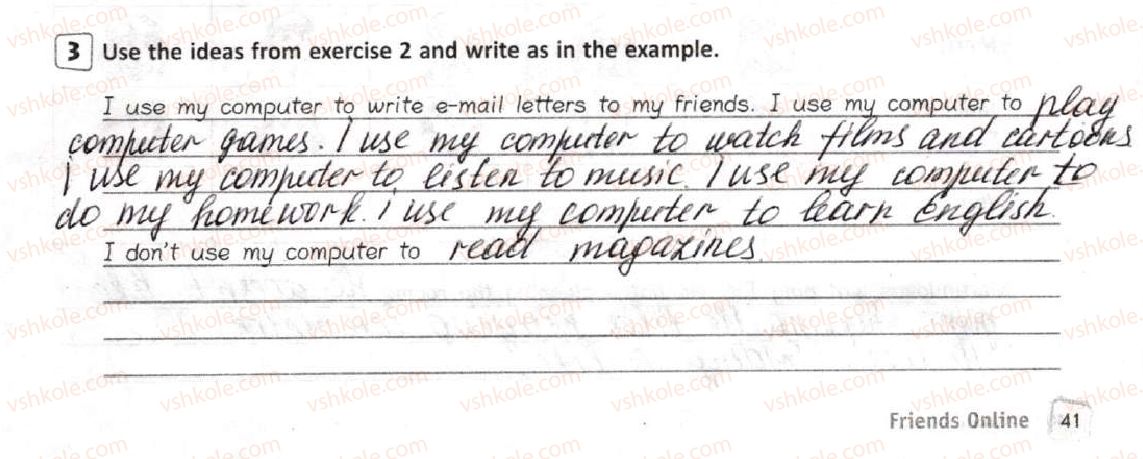 3 Use the ideas from exercise 2 and write as in the example.
I use my computer to write e-mail letters to my friends. I use my computer to play
computer games. I use my computer to watch films and cartoons
I use my computer to listen to music. I use my computer to
do my homework. I use my computer to learn English.
I don't use my computer to read magazines.
Friends Online 41